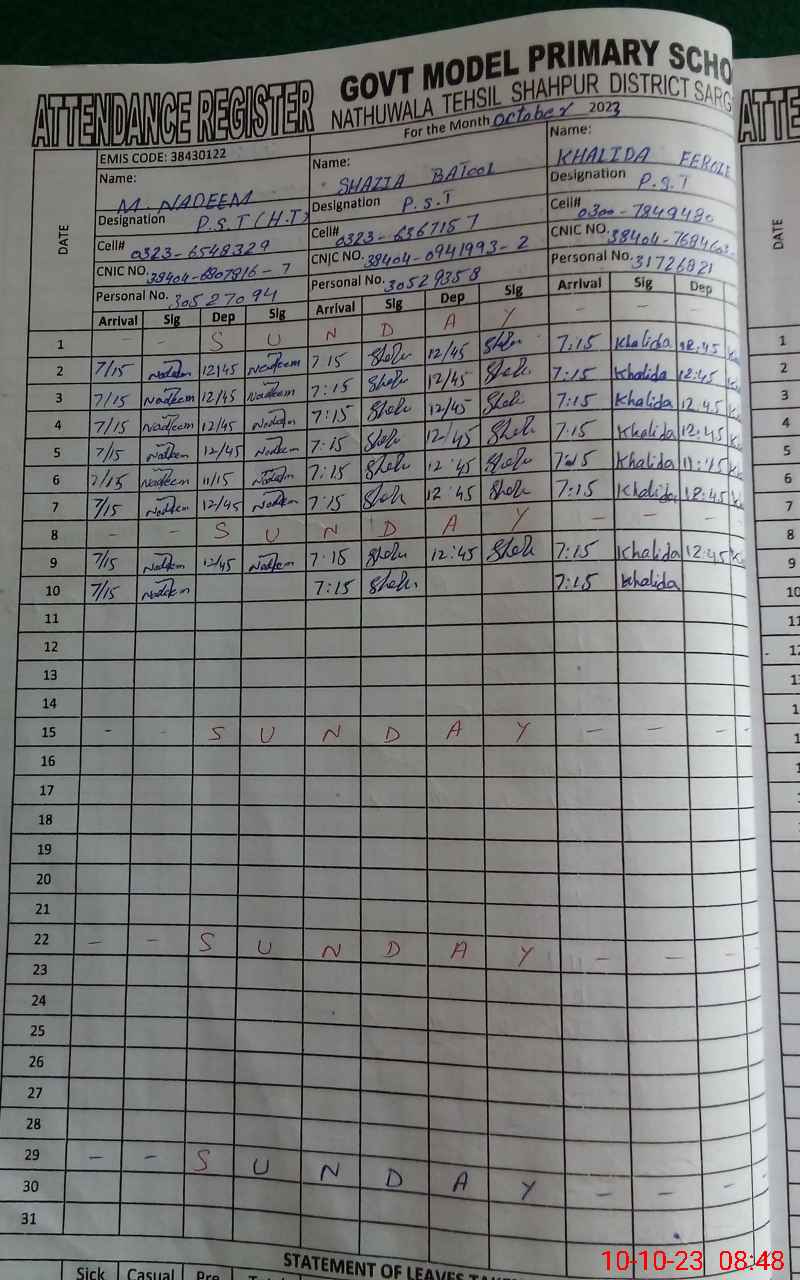 ATTENDANCE REGISTER
GOVT MODEL PRIMARY SCHO
NATHUWALA TEHSIL SHAHPUR DISTRICT SARG
For the Month October 2023
EMIS CODE: 38430122
Name: M. NADEEM Name: SHAZIA BATOOL Name: KHALIDA FEROZE
Designation P.S.T (H.T) Designation P.S.T Designation P.S.T
Cell# 0323-6548329 Cell# 0323-6367157 Cell# 0300-7849480
CNIC NO. 38404-6807816-7 CNIC NO. 38404-0941993-2 CNIC NO. 38404-7684603-
Personal No. 30527094 Personal No. 30529358 Personal No. 31726821
DATE Arrival Sig Dep Sig Arrival Sig Dep Sig Arrival Sig Dep
1 - - S U N D A Y - - -
2 7/15 Nadeem 12/45 Nadeem 7:15 12/45 7:15 Khalida 12:45
3 7/15 Nadeem 12/45 Nadeem 7:15 12/45 7:15 Khalida 12:45
4 7/15 Nadeem 12/45 Nadeem 7:15 12/45 7:15 Khalida 12:45
5 7/15 Nadeem 12/45 Nadeem 7:15 12/45 7:15 Khalida 12:45
6 7/15 Nadeem 11/15 Nadeem 7:15 12:45 7:15 Khalida 11:15
7 7/15 Nadeem 12/45 Nadeem 7:15 12:45 7:15 Khalida 12:45
8 - - S U N D A Y - - -
9 7/15 Nadeem 12/45 Nadeem 7:15 12:45 7:15 Khalida 12:45
10 7/15 Nadeem 7:15 7:15 Khalida
11
12
13
14
15 - - S U N D A Y - - -
16
17
18
19
20
21
22 - - S U N D A Y - - -
23
24
25
26
27
28
29 - - S U N D A Y - - -
30
31
STATEMENT OF LEAVES
Sick Casual Pre
ATTE
DATE
1
2
3
4
5
6
7
8
9
10
11
12
10-10-23 08:48